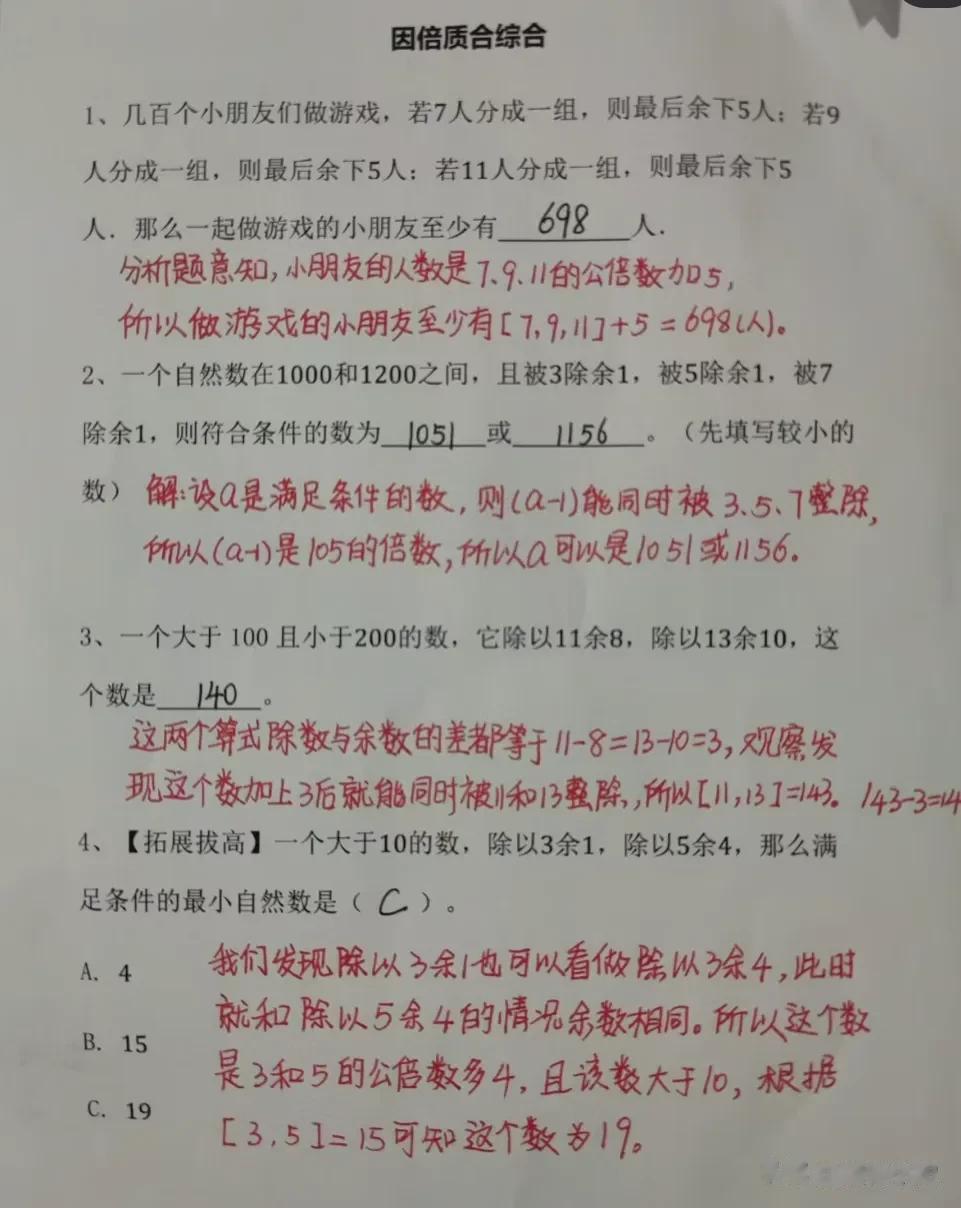 因倍质合综合
1、几百个小朋友们做游戏，若7人分成一组，则最后余下5人；若9
人分成一组，则最后余下5人；若11人分成一组，则最后余下5
人．那么一起做游戏的小朋友至少有 698 人.
分析题意知，小朋友的人数是7、9、11的公倍数加5，
所以做游戏的小朋友至少有[7,9,11]+5=698(人)。
2、一个自然数在1000和1200之间，且被3除余1，被5除余1，被7
除余1，则符合条件的数为 1051 或 1156 。（先填写较小的
数） 解:设a是满足条件的数，则(a-1)能同时被3、5、7整除，
所以(a-1)是105的倍数，所以a可以是1051或1156。
3、一个大于 100 且小于200的数，它除以11余8，除以13余10，这
个数是 140 。
这两个算式除数与余数的差都等于11-8=13-10=3，观察发
现这个数加上3后就能同时被11和13整除，所以[11,13]=143。 143-3=14
4、【拓展拔高】一个大于10的数，除以3余1，除以5余4，那么满
足条件的最小自然数是（ C ）。
A. 4
我们发现除以3余1也可以看做除以3余4，此时
就和除以5余4的情况余数相同。所以这个数
B. 15
是3和5的公倍数多4，且该数大于10，根据
C. 19
[3,5]=15可知这个数为19。